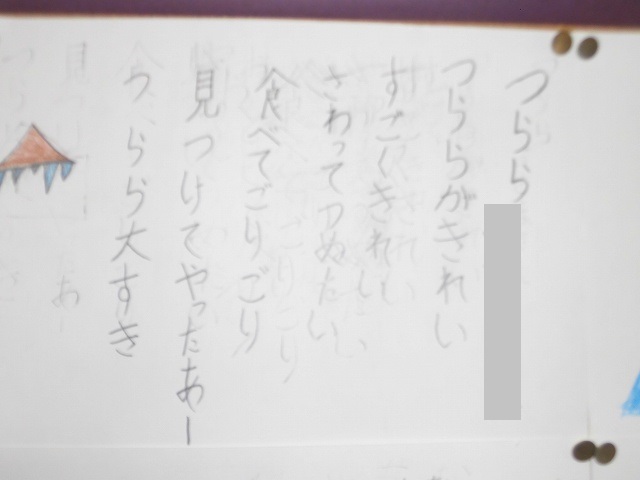 つらら
つららがきれい
すごくきれい
さわってつめたい
食べてごりごり
見つけてやったあー
つらら大すき